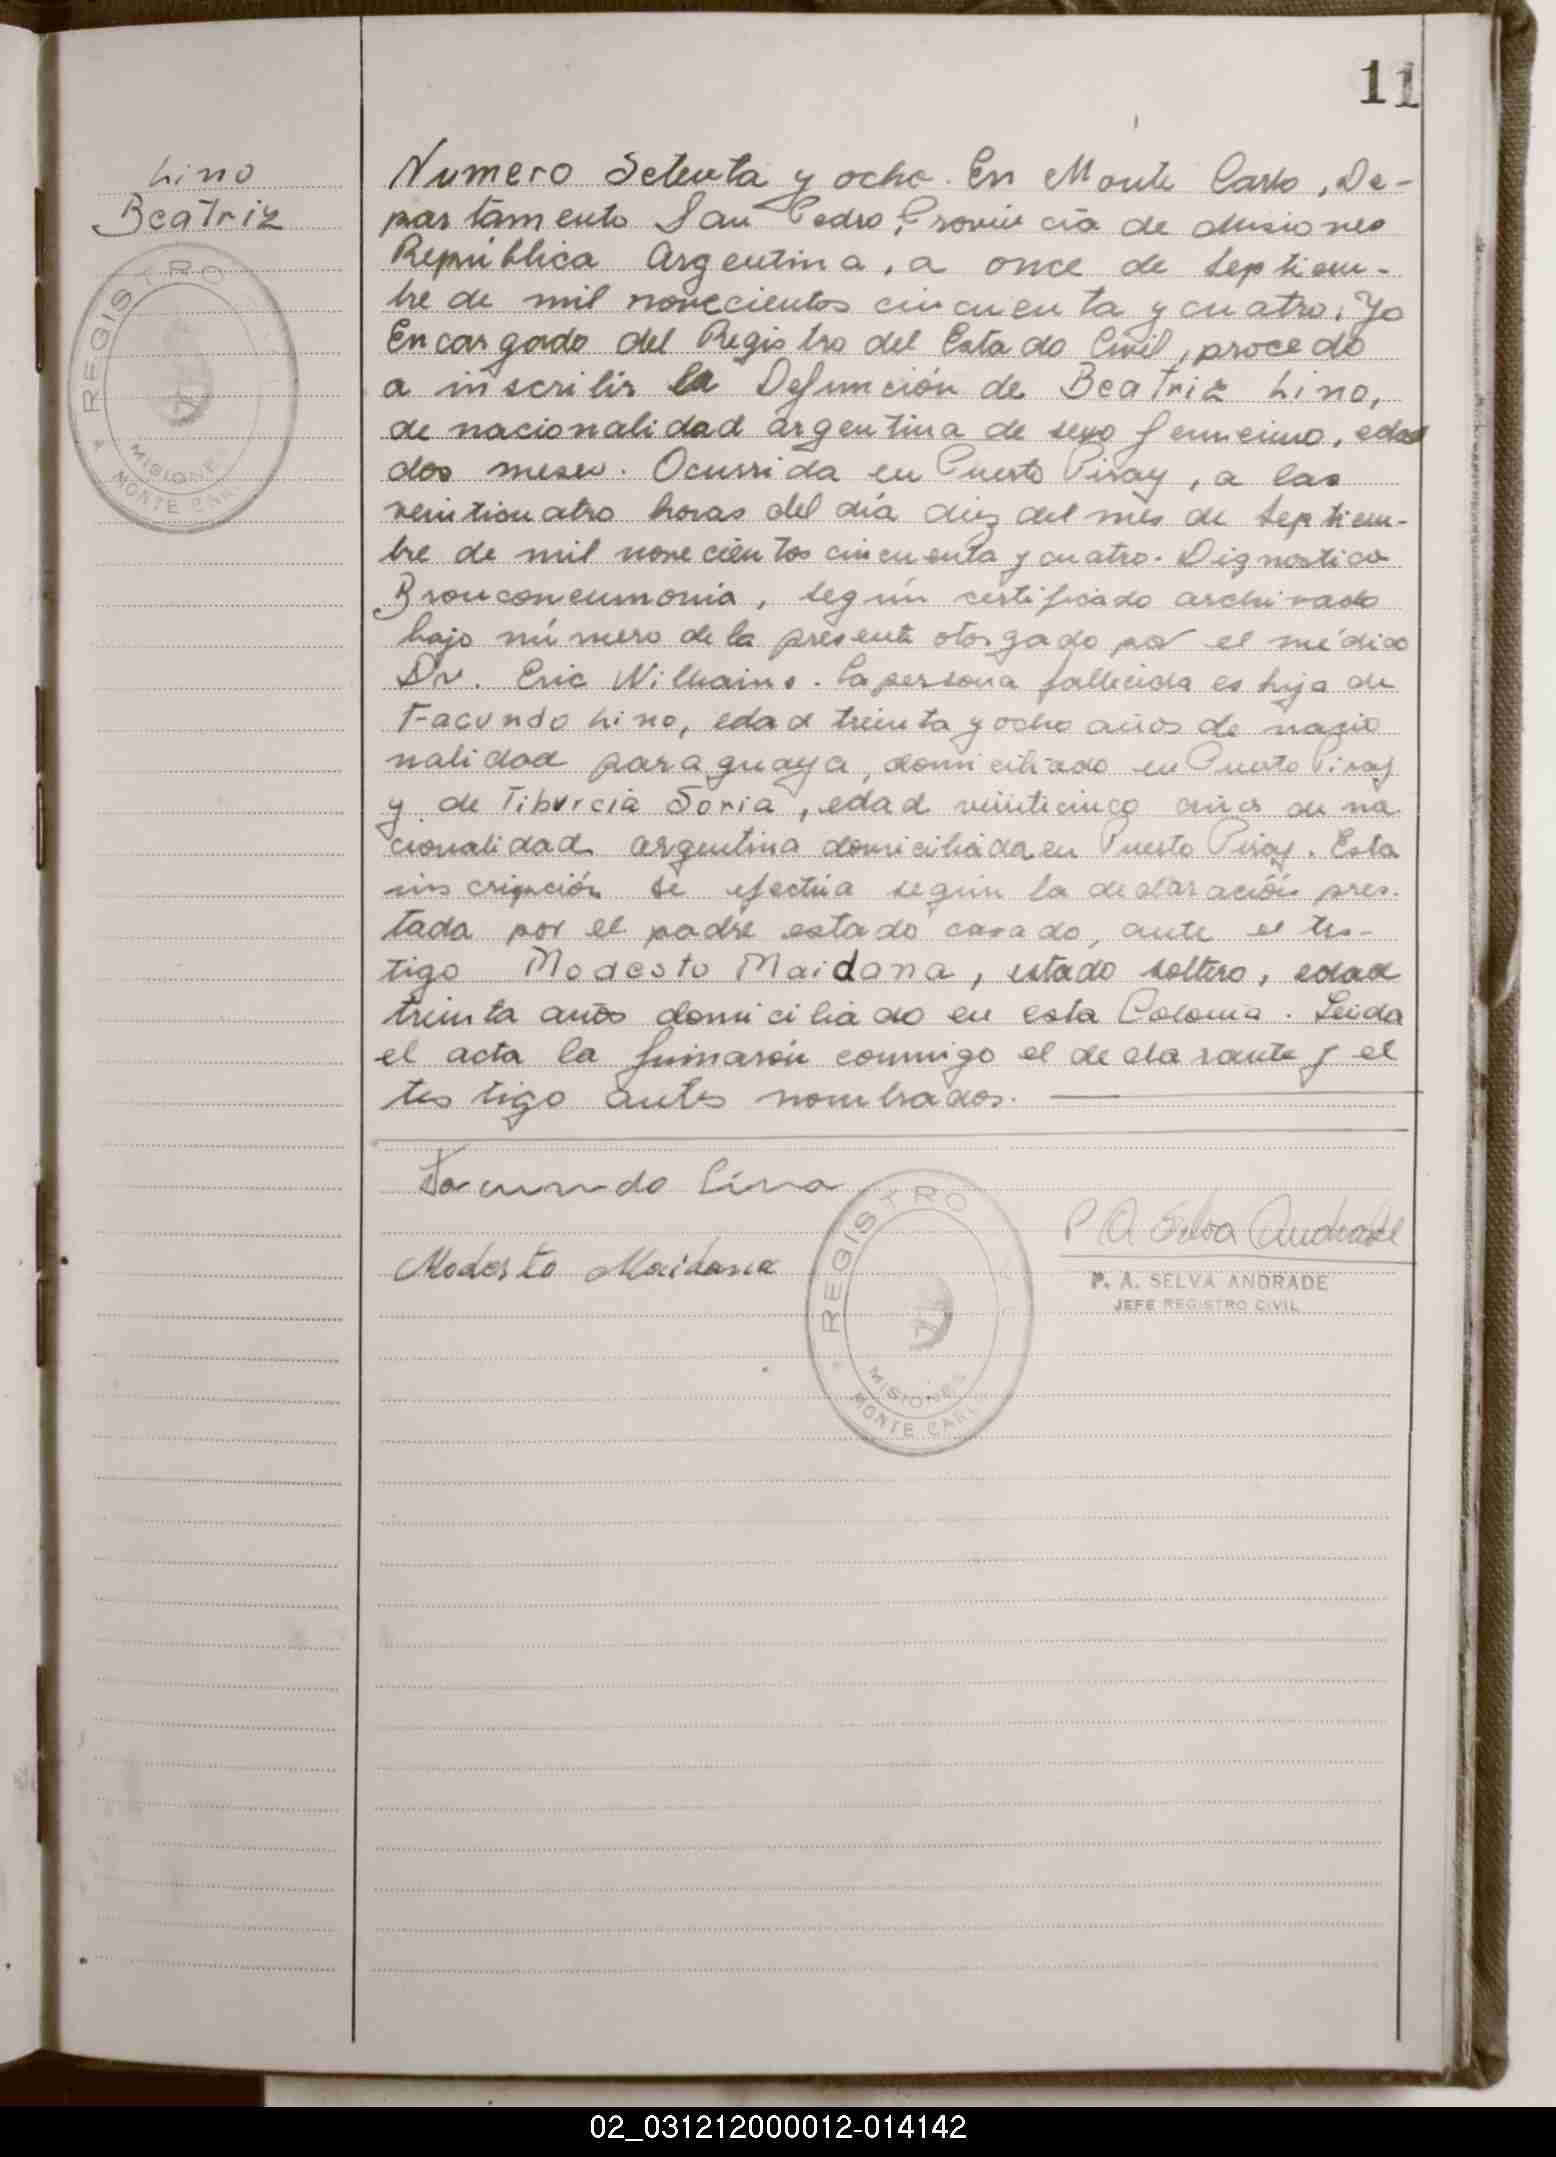 11
Lino
Beatriz
REGISTRO
MISIONES
MONTE CARL
Numero Setenta y ocho. En Monte Carlo, De-
partamento San Pedro, Provincia de Misiones
República Argentina, a once de Septiem-
bre de mil novecientos cincuenta y cuatro. Yo
Encargado del Registro del Estado Civil, procedo
a inscribir la Defunción de Beatriz Lino,
de nacionalidad argentina de sexo femenino, edad
dos meses. Ocurrida en Puerto Piray, a las
veinticuatro horas del día diez del mes de Septiem-
bre de mil novecientos cincuenta y cuatro. Dignostico
Bronconeumonia, según certificado archivado
bajo número de la presente otorgado por el médico
Dr. Eric Wilkains. La persona fallecida es hija de
Facundo Lino, edad treinta y ocho años de nacio
nalidad paraguaya, domiciliado en Puerto Piray
y de Tiburcia Soria, edad veinticinco años de na
cionalidad argentina domiciliada en Puerto Piray. Esta
inscripción se efectúa según la declaración pres-
tada por el padre estado casado, ante el tes-
tigo Modesto Maidana, estado soltero, edad
treinta años domiciliado en esta Colonia. Leida
el acta la firmarón conmigo el declarante y el
testigo antes nombrados.
Facundo Lino
Modesto Maidana
REGISTRO
MISIONES
MONTE CARL
P A Selva Andrade
P. A. SELVA ANDRADE
JEFE REGISTRO CIVIL
02_031212000012-014142